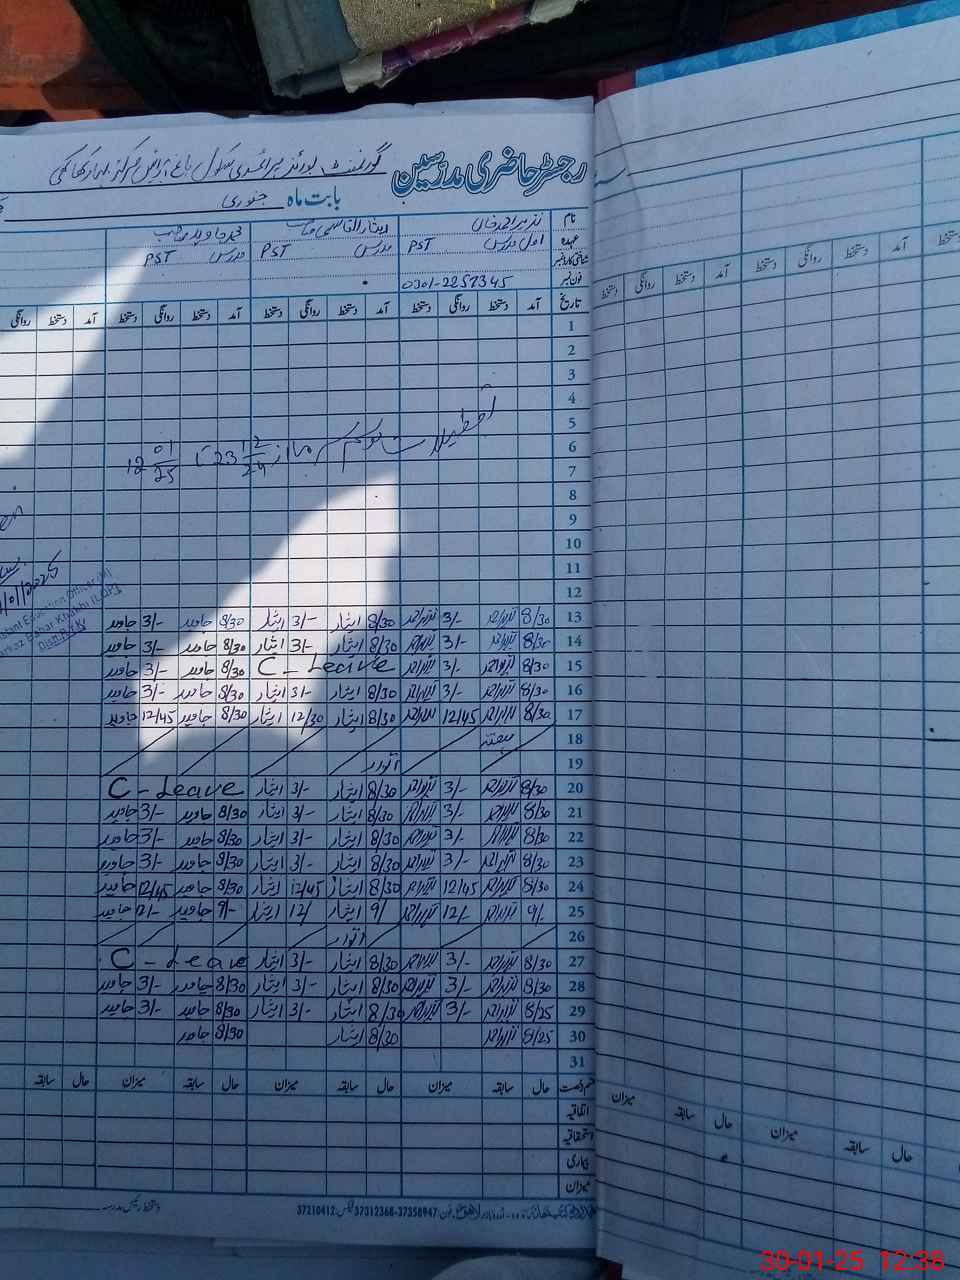 رجسٹر حاضری مدرسین گورنمنٹ بوائز پرائمری سکول باغ
بابت ماہ جنوری
نام نذیر احمد خان ایثار القاسمی محمد جاوید
عہدہ اول مدرس PST مدرس PST مدرس PST
شناختی کارڈ نمبر
فون نمبر 0301-2257345
تاریخ آمد دستخط روانگی دستخط آمد دستخط روانگی دستخط آمد دستخط روانگی دستخط آمد دستخط روانگی
1
2
3
4
5
6 تعطیلات موسم سرما از 23 12/24 تا 12 01/25
7
8
9
10
11
12
13 8/30 نذیر احمد 3/- نذیر احمد 8/30 ایثار 3/- ایثار 8/30 جاوید 3/- جاوید
14 8/30 نذیر احمد 3/- نذیر احمد 8/30 ایثار 3/- ایثار 8/30 جاوید 3/- جاوید
15 8/30 نذیر احمد 3/- نذیر احمد C - Leave 8/30 جاوید 3/- جاوید
16 8/30 نذیر احمد 3/- نذیر احمد 8/30 ایثار 3/- ایثار 8/30 جاوید 3/- جاوید
17 8/30 نذیر احمد 12/45 نذیر احمد 8/30 ایثار 12/30 ایثار 8/30 جاوید 12/45 جاوید
18 ہفتہ
19 اتوار
20 8/30 نذیر احمد 3/- نذیر احمد 8/30 ایثار 3/- ایثار C - Leave
21 8/30 نذیر احمد 3/- نذیر احمد 8/30 ایثار 3/- ایثار 8/30 جاوید 3/- جاوید
22 8/30 نذیر احمد 3/- نذیر احمد 8/30 ایثار 3/- ایثار 8/30 جاوید 3/- جاوید
23 8/30 نذیر احمد 3/- نذیر احمد 8/30 ایثار 3/- ایثار 8/30 جاوید 3/- جاوید
24 8/30 نذیر احمد 12/45 نذیر احمد 8/30 ایثار 12/45 ایثار 8/30 جاوید 12/45 جاوید
25 9/- نذیر احمد 12/- نذیر احمد 9/ ایثار 12/ ایثار 9/- جاوید 12/- جاوید
26 اتوار
27 8/30 نذیر احمد 3/- نذیر احمد 8/30 ایثار 3/- ایثار C - Leave
28 8/30 نذیر احمد 3/- نذیر احمد 8/30 ایثار 3/- ایثار 8/30 جاوید 3/- جاوید
29 8/25 نذیر احمد 3/- نذیر احمد 8/30 ایثار 3/- ایثار 8/30 جاوید 3/- جاوید
30 8/25 نذیر احمد 8/30 ایثار 8/30 جاوید
31
قسم رخصت حال سابقہ میزان حال سابقہ میزان حال سابقہ میزان حال سابقہ
اتفاقیہ
استحقاقیہ
بیماری
میزان
37210412 فیکس 37312368-37358947 فون
دستخط رئیس مدرسہ
آمد دستخط روانگی دستخط آمد دستخط روانگی دستخط
حال سابقہ میزان حال سابقہ میزان
30-01-25 12:38